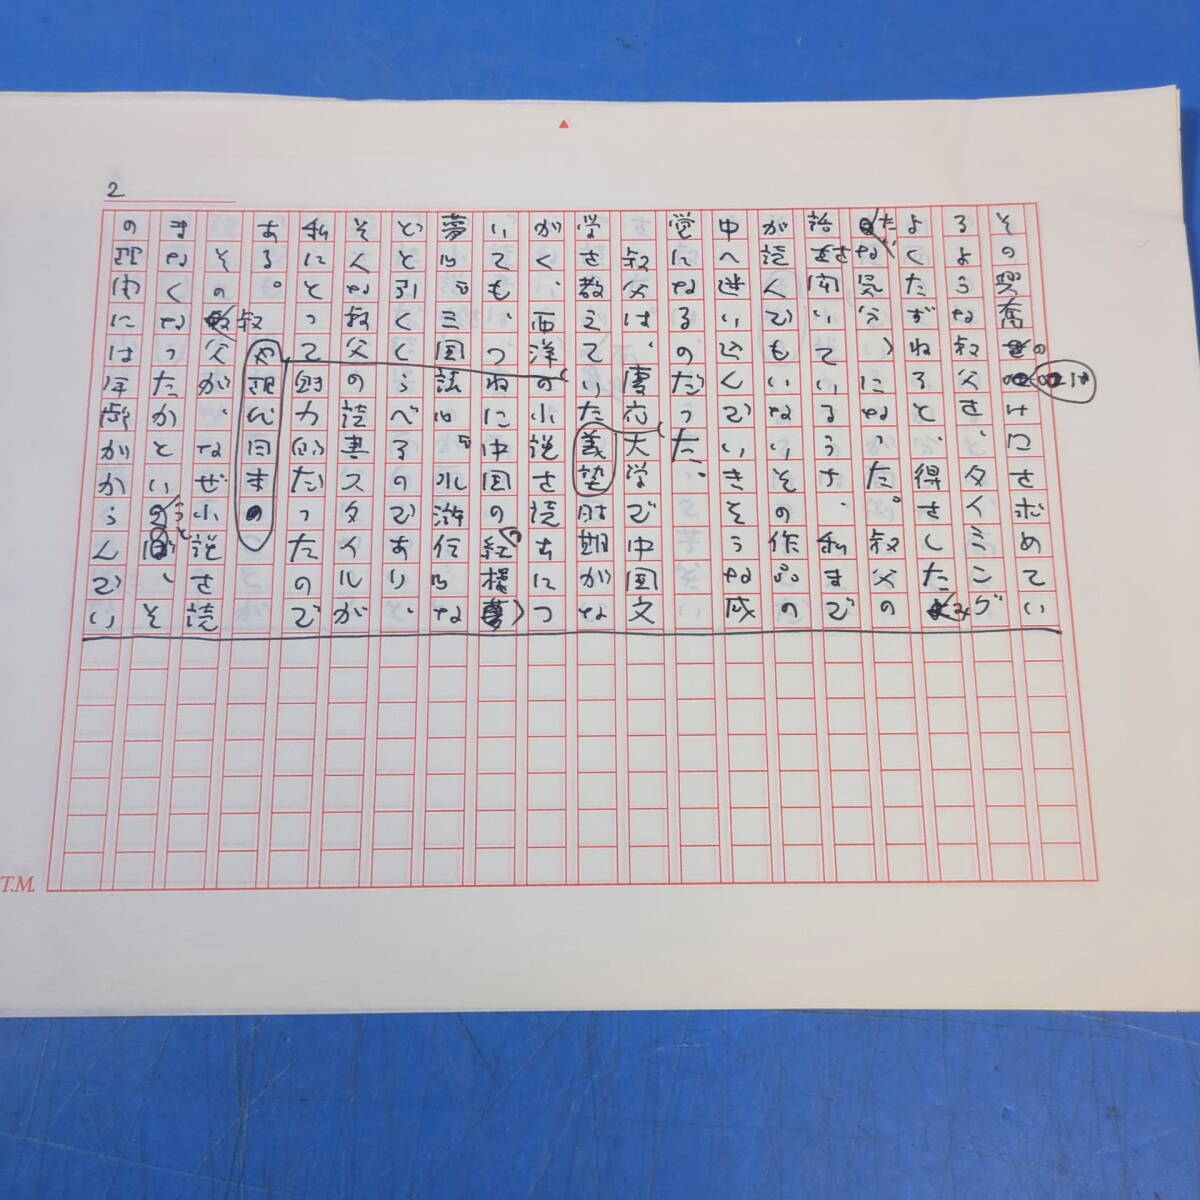 2
その興奮のはけ口を求めてい
るような叔父を、タイミング
よくたずねると、得をしたみ
たいな気分になった。叔父の
話を聞いているうち、私まで
が読んでもいないその作品の
中へ迷い込んでいきそうな感
覚になるのだった。
叔父は、慶応義塾大学で中国文
学を教えていた時期がな
がく、西洋や現代日本の小説を読むにつ
いても、つねに中国の『紅楼
夢』や『三国志』や『水滸伝』な
どと引くらべるのであり、
そんな叔父の読書スタイルが
私にとって魅力的だったので
ある。
その叔父が、なぜ小説を読
まなくなったかというと、そ
の理由には年齢がからんでい
T.M.